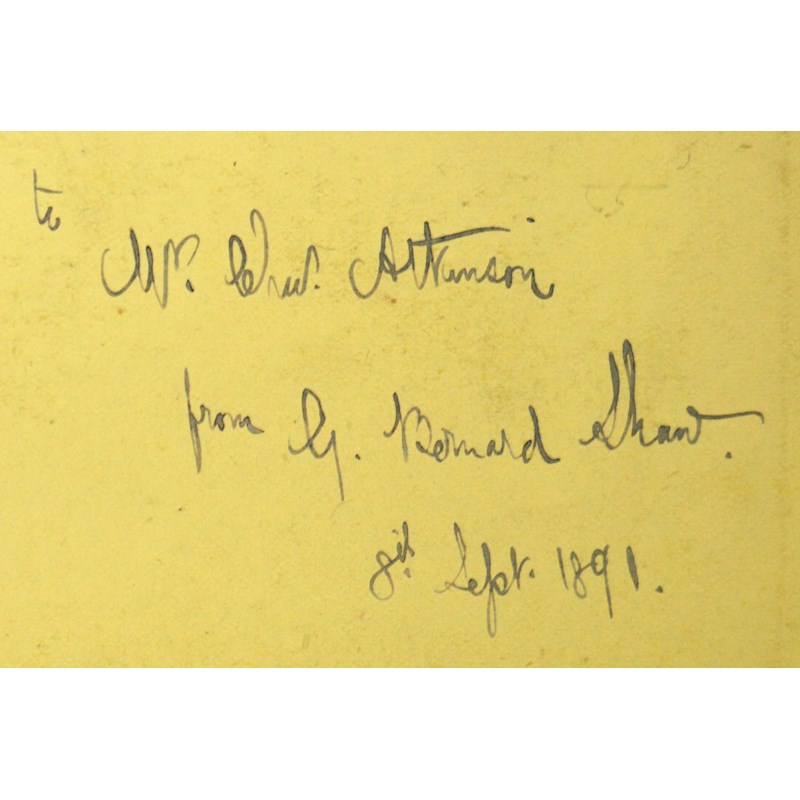 to
Mr. Atkinson
from G. Bernard Shaw.
8th Sept. 1891.